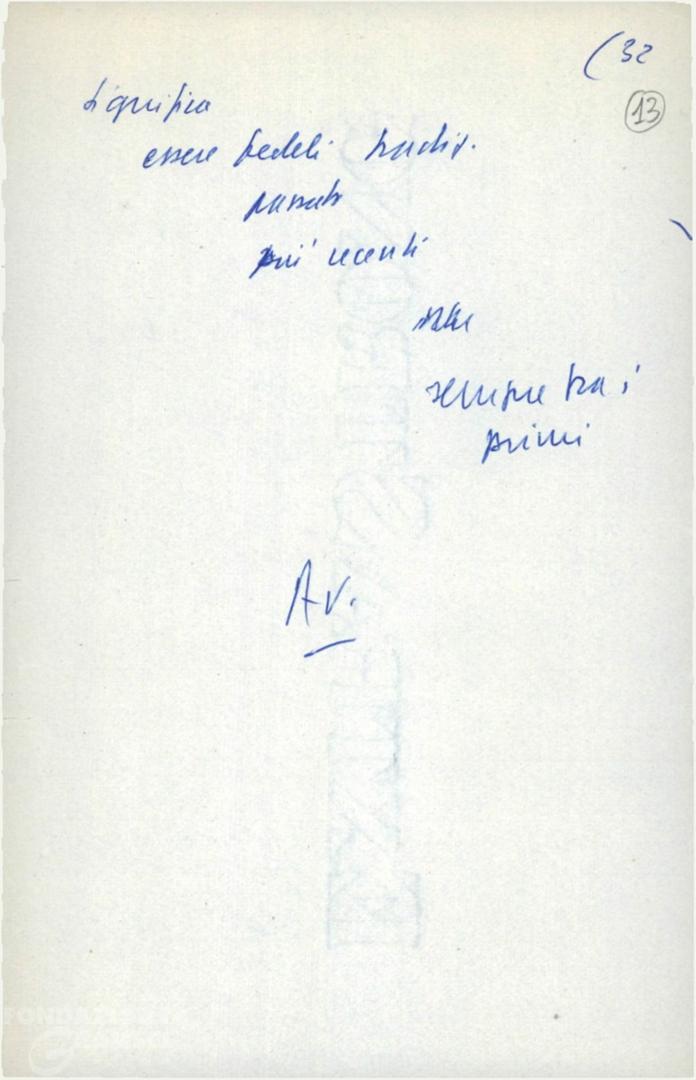 (32
13
Significa
essere fedeli tradiz.
passato
più recenti
sempre tra i
primi
Av.
FONDAZIONE